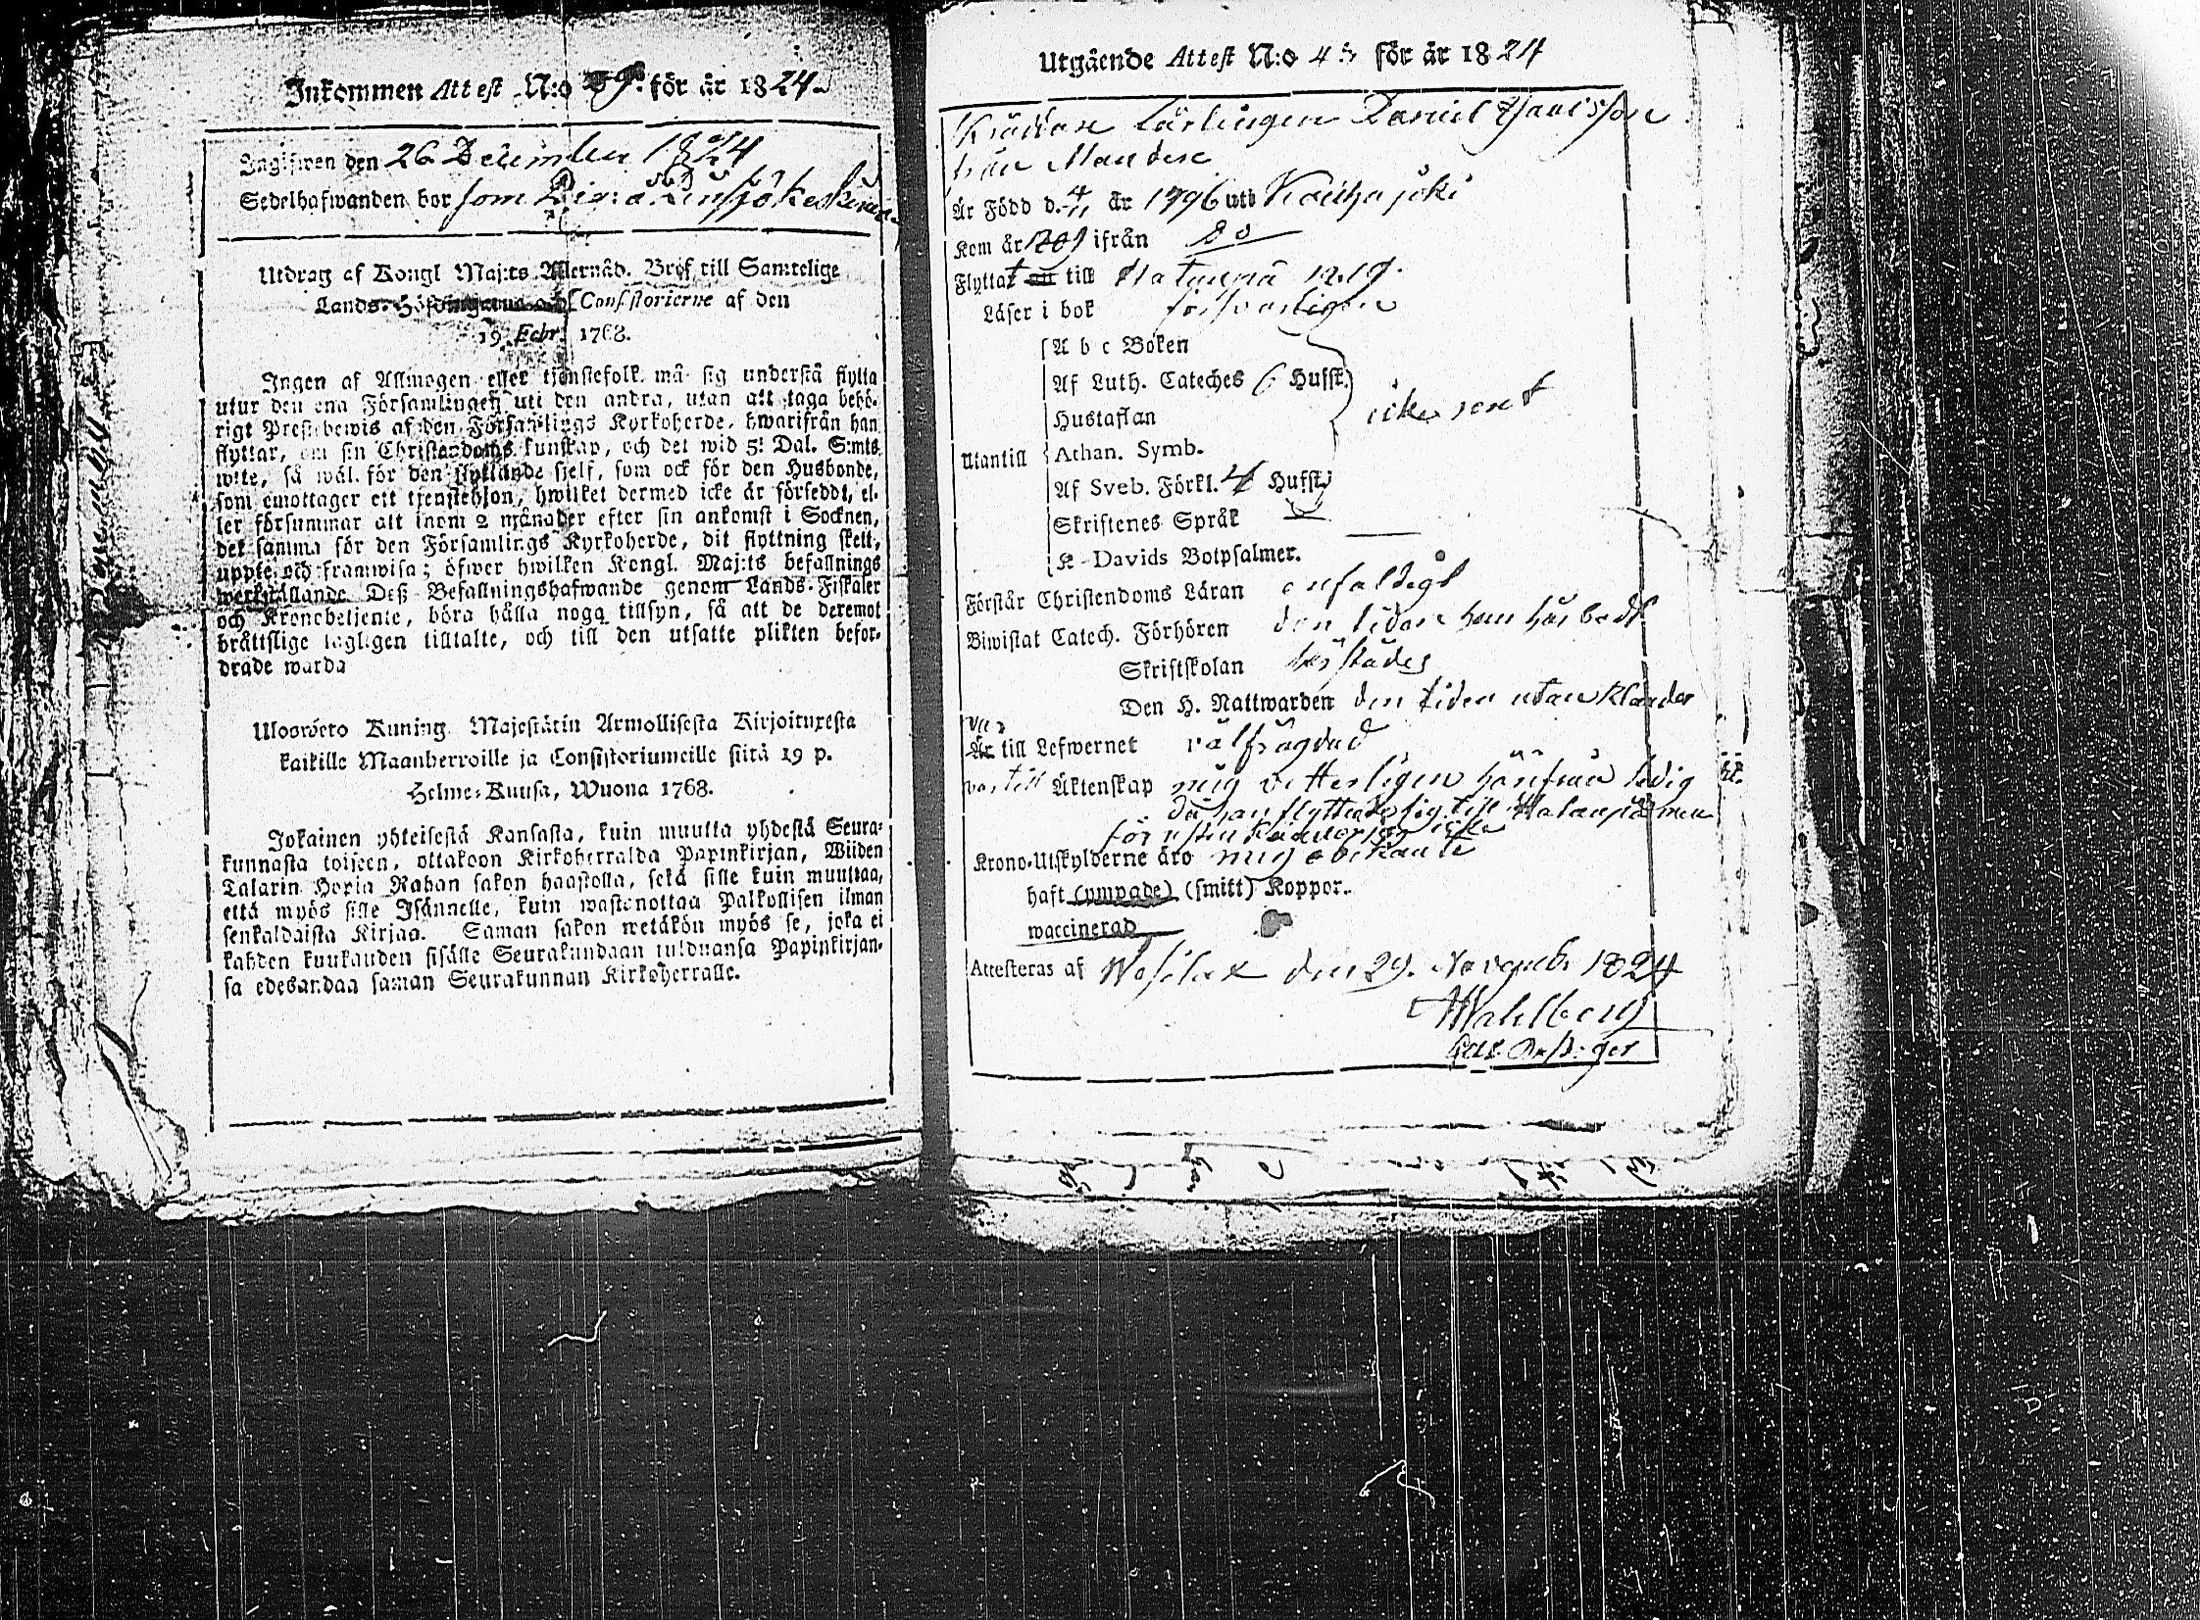 Inkommen Attest N:o 59. för år 1824.
Ingifwen den 26 December 1824
Sedelhafwanden bor som
Utdrag af Kongl Maj:ts Allernåd. Bref till Samtelige
Lands-Höfdingarne och Consistorierne af den
19 Febr. 1768.
Ingen af Allmogen eller tjenstefolk må sig understå flytta
utur den ena Församlingen uti den andra, utan att taga behö-
rigt Prestbewis af den Församlings Kyrkoherde, hwarifrån han
flyttar, om sin Christendoms kunskap, och det wid 5: Dal. S:mts
wite, så wäl för den flyttande sjelf, som ock för den Husbonde,
som emottager ett tjenstehjon, hwilket dermed icke är försedt, el-
ler försummar att inom 2 månader efter sin ankomst i Socknen,
det samma för den Församlings Kyrkoherde, dit flyttning skett,
uppte och framwisa; öfwer hwilken Kongl. Maj:ts befallnings
werkställande Deß Befallningshafwande genom Lands-Fiskaler
och Kronobetjente, böra hålla noga tillsyn, så att de deremot
bråttslige lagligen tilltalte, och till den utsatte plikten befor-
drade warda
Ulosweto Kuning. Majestätin Armollisesta Kirjoituxesta
kaikille Maanherroille ja Consistoriumeille siitä 19 p.
Helme-Kuusa, Wuona 1768.
Jokainen yhteisestä Kansasta, kuin muutta yhdestä Seura-
kunnasta toiseen, ottakoon Kirkoherralda Papinkirjan, Wiiden
Talarin Hopia Rahan sakon haastolla, sekä sille kuin muuttaa,
että myös sille Isännelle, kuin wastanottaa Palkollisen ilman
senkaldaista Kirjaa. Saman sakon wetäkön myös se, joka ei
kahden kuukauden sisälle Seurakundaan tulduansa Papinkirjan-
sa edesandaa saman Seurakunnan Kirkoherralle.
Utgående Attest N:o 45 för år 1824
Lärlingen Daniel
från
Är Född d. 4/11 år 1796 uti
Kom år ifrån do
Flyttat till 1819.
Läser i bok försvarligen
A b c Boken
Af Luth. Cateches 6 Hufst.
Hustaflan icke rent
Utantill Athan. Symb.
Af Sveb. Förkl. 4 Hufst.
Skriftenes Språk
K. Davids Botpsalmer.
Förstår Christendoms Läran enfaldigt
Biwistat Catech. Förhören den tiden han här bodt
Skriftskolan härstädes
Den H. Nattwarden den tiden utan klander
var
Är till Lefwernet välfrägdad
var till Äktenskap mig vetterligen härifrån ledig
då han flyttade sig till men
för
Krono-Utskylderne äro mig obekante
haft (ympade) (smitt) Koppor.
waccinerad
Attesteras af Wesilax den 29. Novemb. 1824
Wahlberg